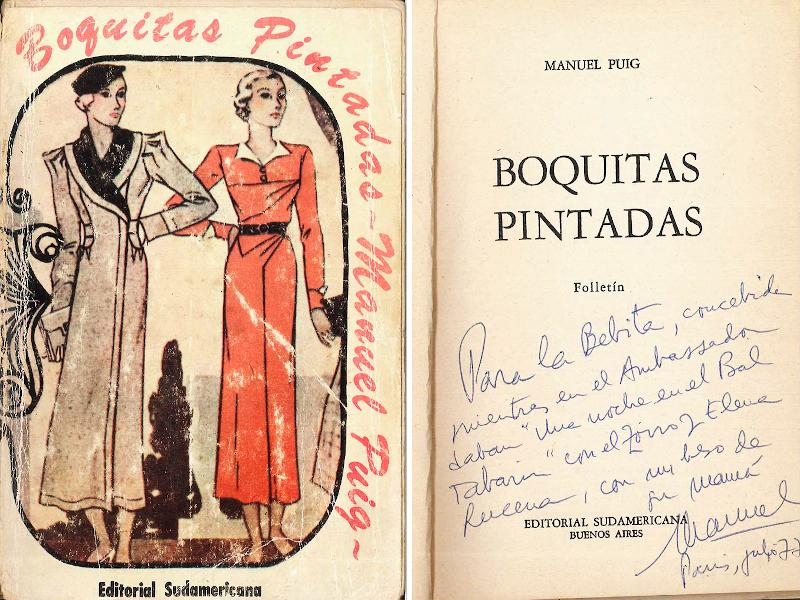 Boquitas Pintadas - Manuel Puig -
Editorial Sudamericana
MANUEL PUIG
BOQUITAS
PINTADAS
Folletín
Para la Bebita, concebida
mientras en el Ambassador
daban "Una noche en el Bal
Tabarin" con el Zorro y Elena
Lucena, con un beso de
su mamá
EDITORIAL SUDAMERICANA
BUENOS AIRES
Manuel
Paris, julio 77